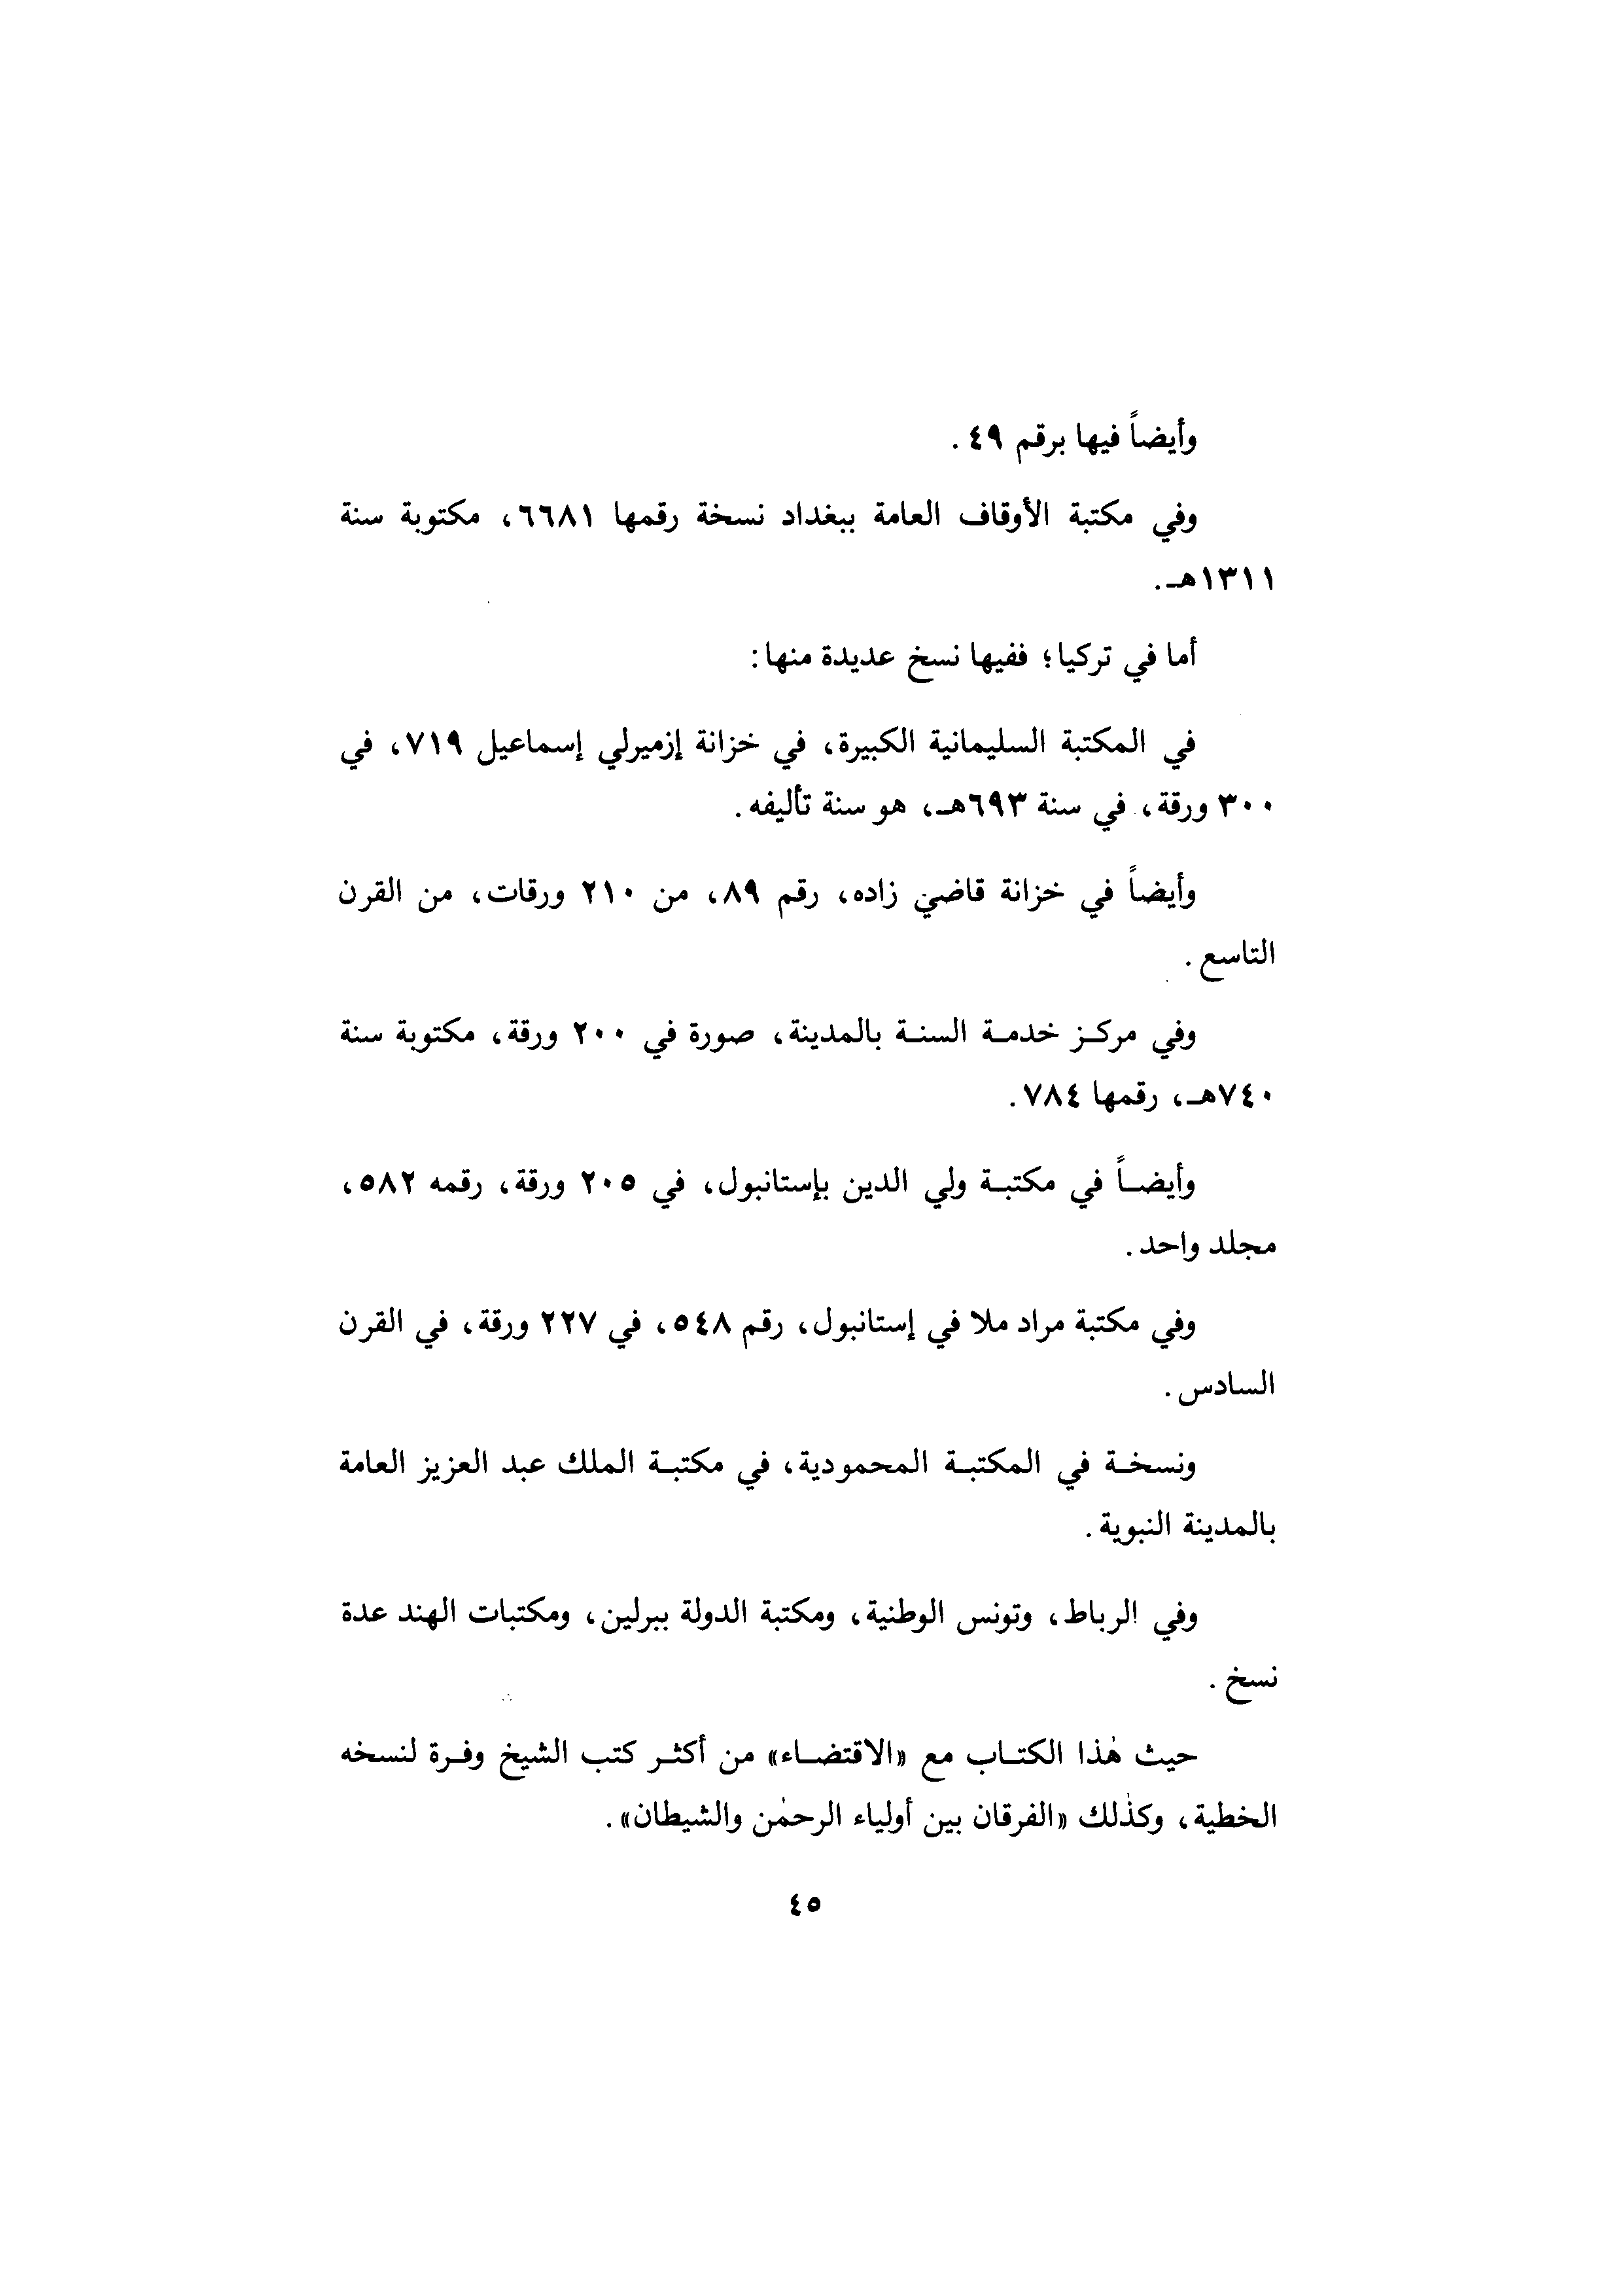 وأيضاً فيها برقم ٤٩ .
وفي مكتبة الأوقاف العامة ببغداد نسخة رقمها ٦٦٨١، مكتوبة سنة
١٣١١هـ.
أما في تركيا؛ ففيها نسخ عديدة منها:
في المكتبة السليمانية الكبيرة، في خزانة إزميرلي إسماعيل ٧١٩، في
٣٠٠ ورقة، في سنة ٦٩٣هـ، هو سنة تأليفه.
وأيضاً في خزانة قاضي زاده، رقم ٨٩، من ٢١٠ ورقات، من القرن
التاسع.
وفي مركـز خدمـة السنـة بالمدينة، صورة في ٢٠٠ ورقة، مكتوبة سنة
٧٤٠هـ، رقمها ٧٨٤.
وأيضـاً في مكتبـة ولي الدين بإستانبول، في ٢٠٥ ورقة، رقمه ٥٨٢،
مجلد واحد.
وفي مكتبة مراد ملا في إستانبول، رقم ٥٤٨، في ٢٢٧ ورقة، في القرن
السادس.
ونسخـة في المكتبـة المحمودية، في مكتبـة الملك عبد العزيز العامة
بالمدينة النبوية.
وفي الرباط، وتونس الوطنية، ومكتبة الدولة ببرلين، ومكتبات الهند عدة
نسخ.
حيث هٰذا الكتـاب مع «الاقتضـاء» من أكثـر كتب الشيخ وفـرة لنسخه
الخطية، وكذٰلك «الفرقان بين أولياء الرحمٰن والشيطان».
٤٥